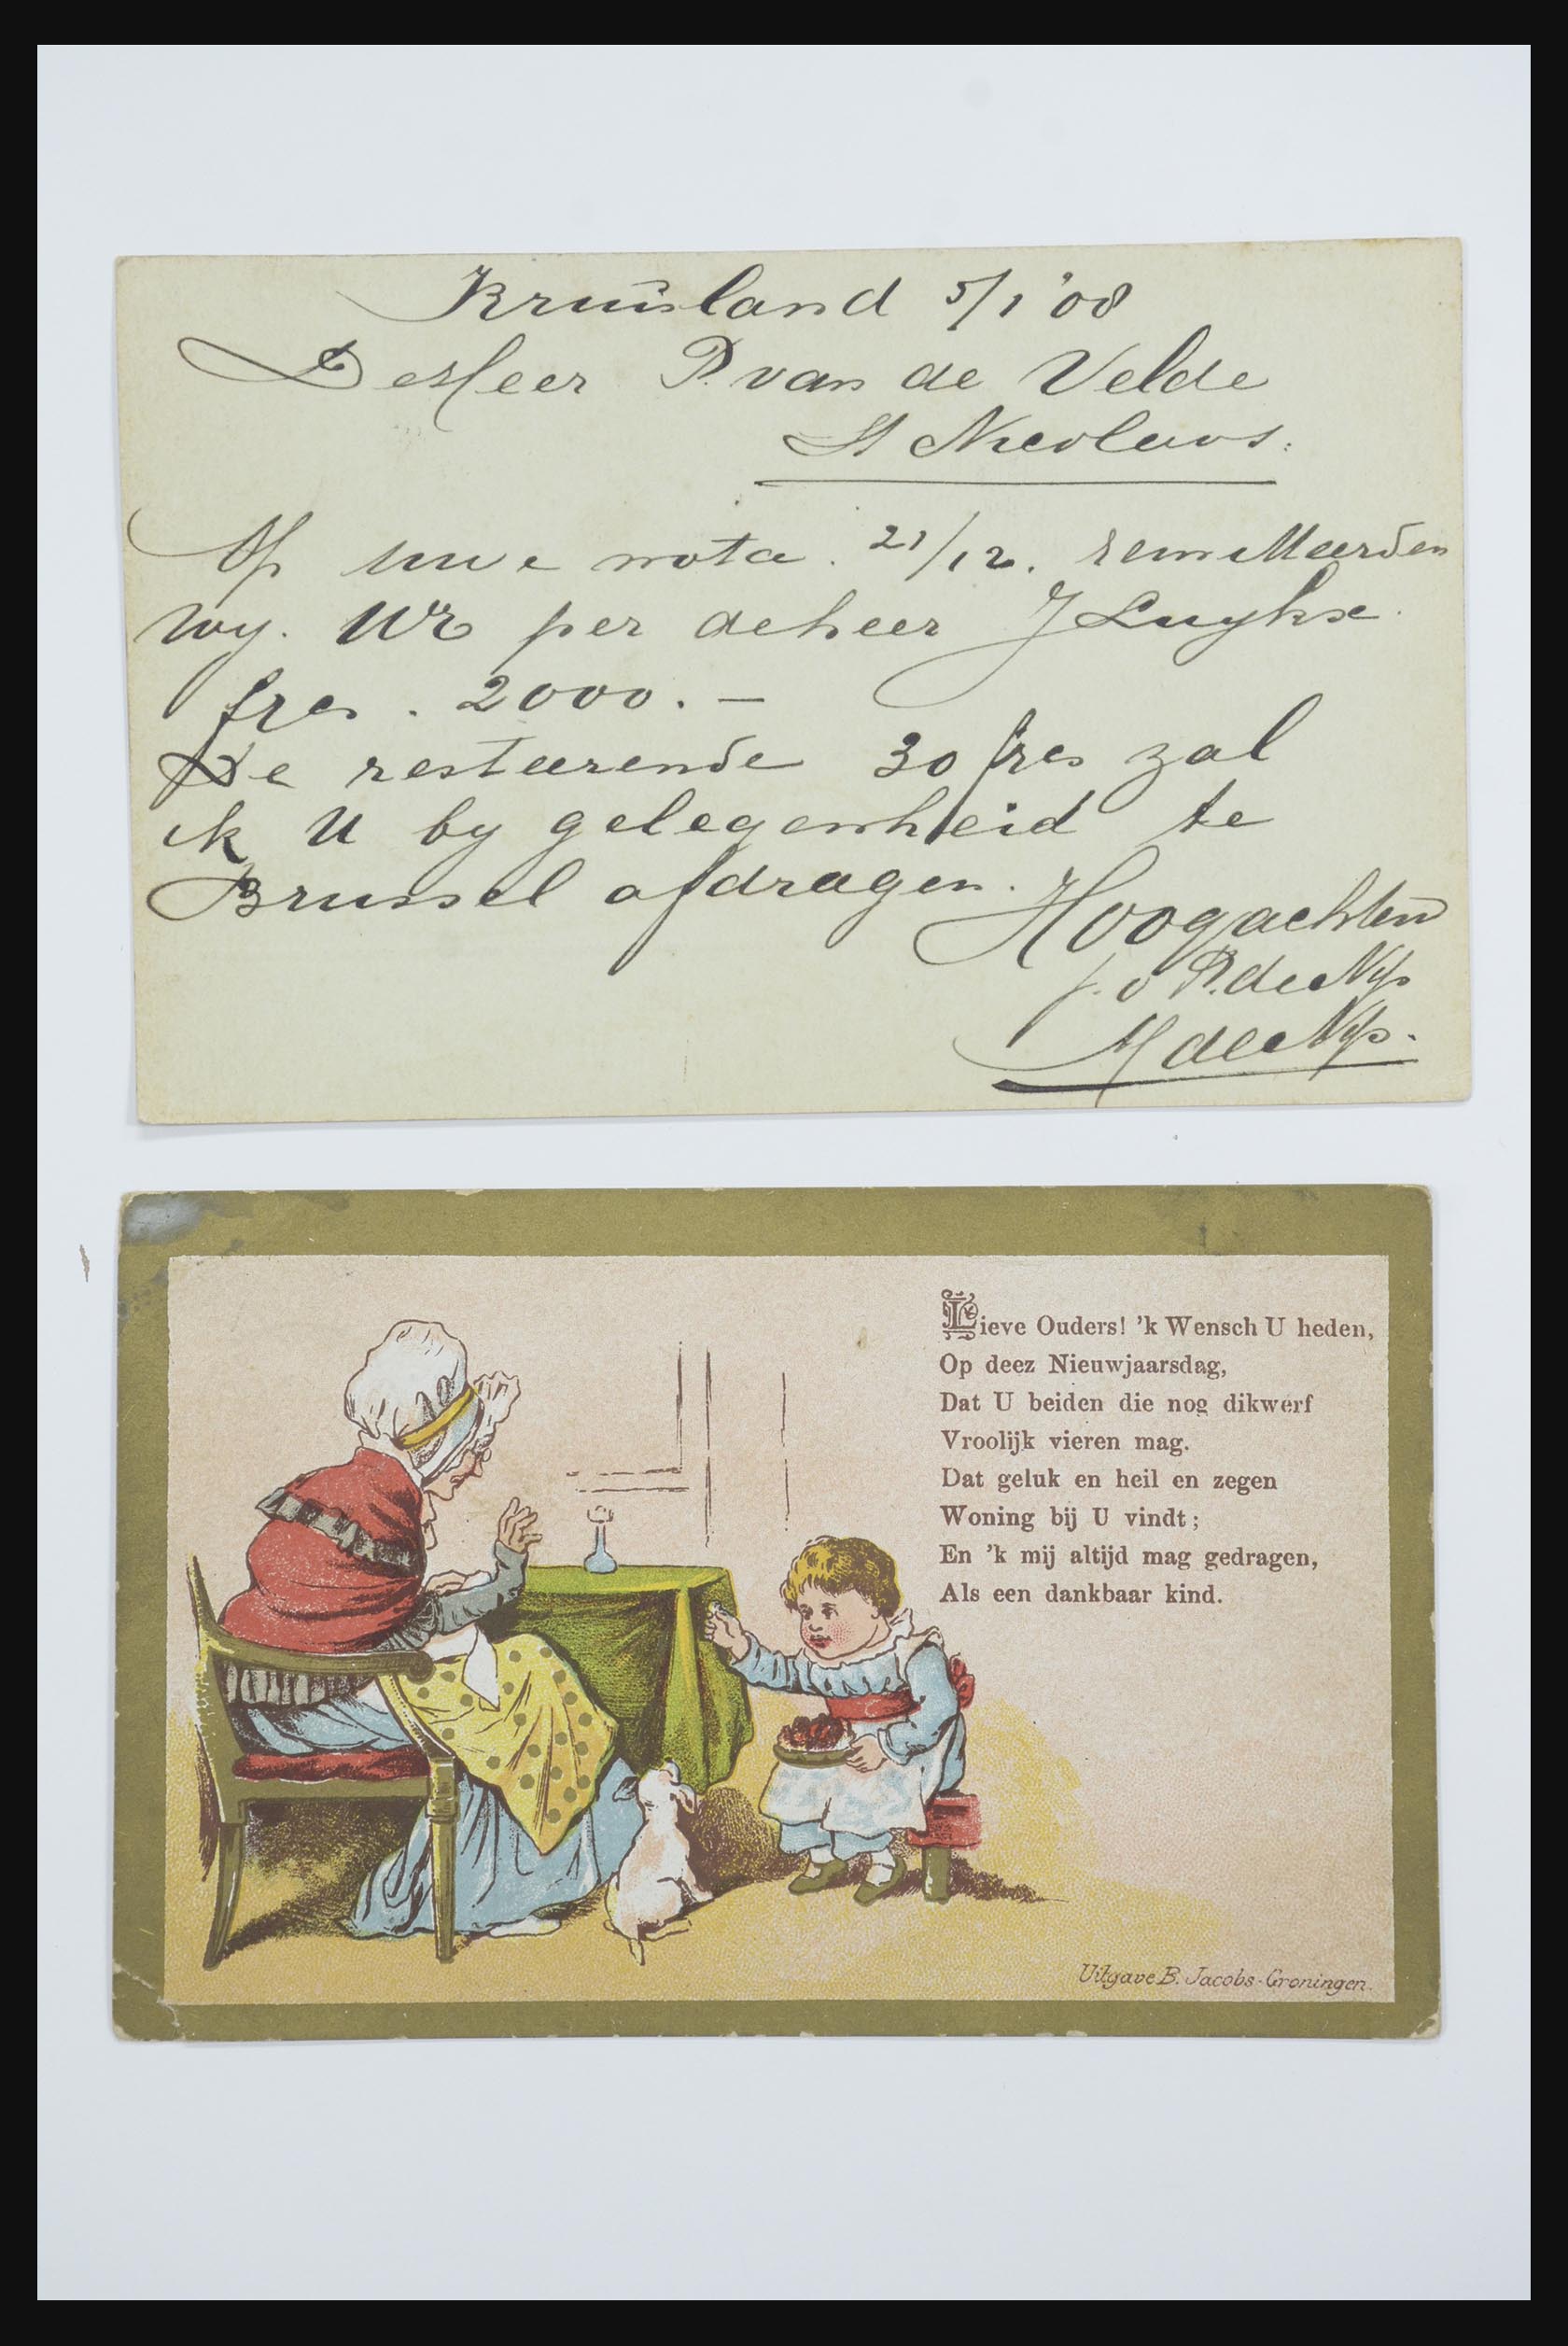 Kruisland 5/1 '08
De Heer P. van de Velde
St Nicolaas.
Op uwe nota. 21/12. remitteerden
wy. UE per de heer J Luykx.
frcs. 2000.—
De resteerende 30 frcs zal
ik U by gelegenheid te
Brussel afdragen.
Hoogachtend
P. de Nys
M de Nys.
Lieve Ouders! 'k Wensch U heden,
Op deez Nieuwjaarsdag,
Dat U beiden die nog dikwerf
Vroolijk vieren mag.
Dat geluk en heil en zegen
Woning bij U vindt;
En 'k mij altijd mag gedragen,
Als een dankbaar kind.
Uitgave B. Jacobs-Groningen.